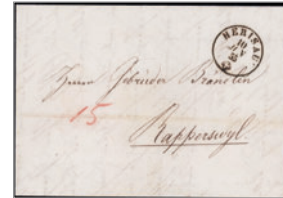 HERISAU
10
Herren Gebrüder Brändlin
15
Rapperswyl.